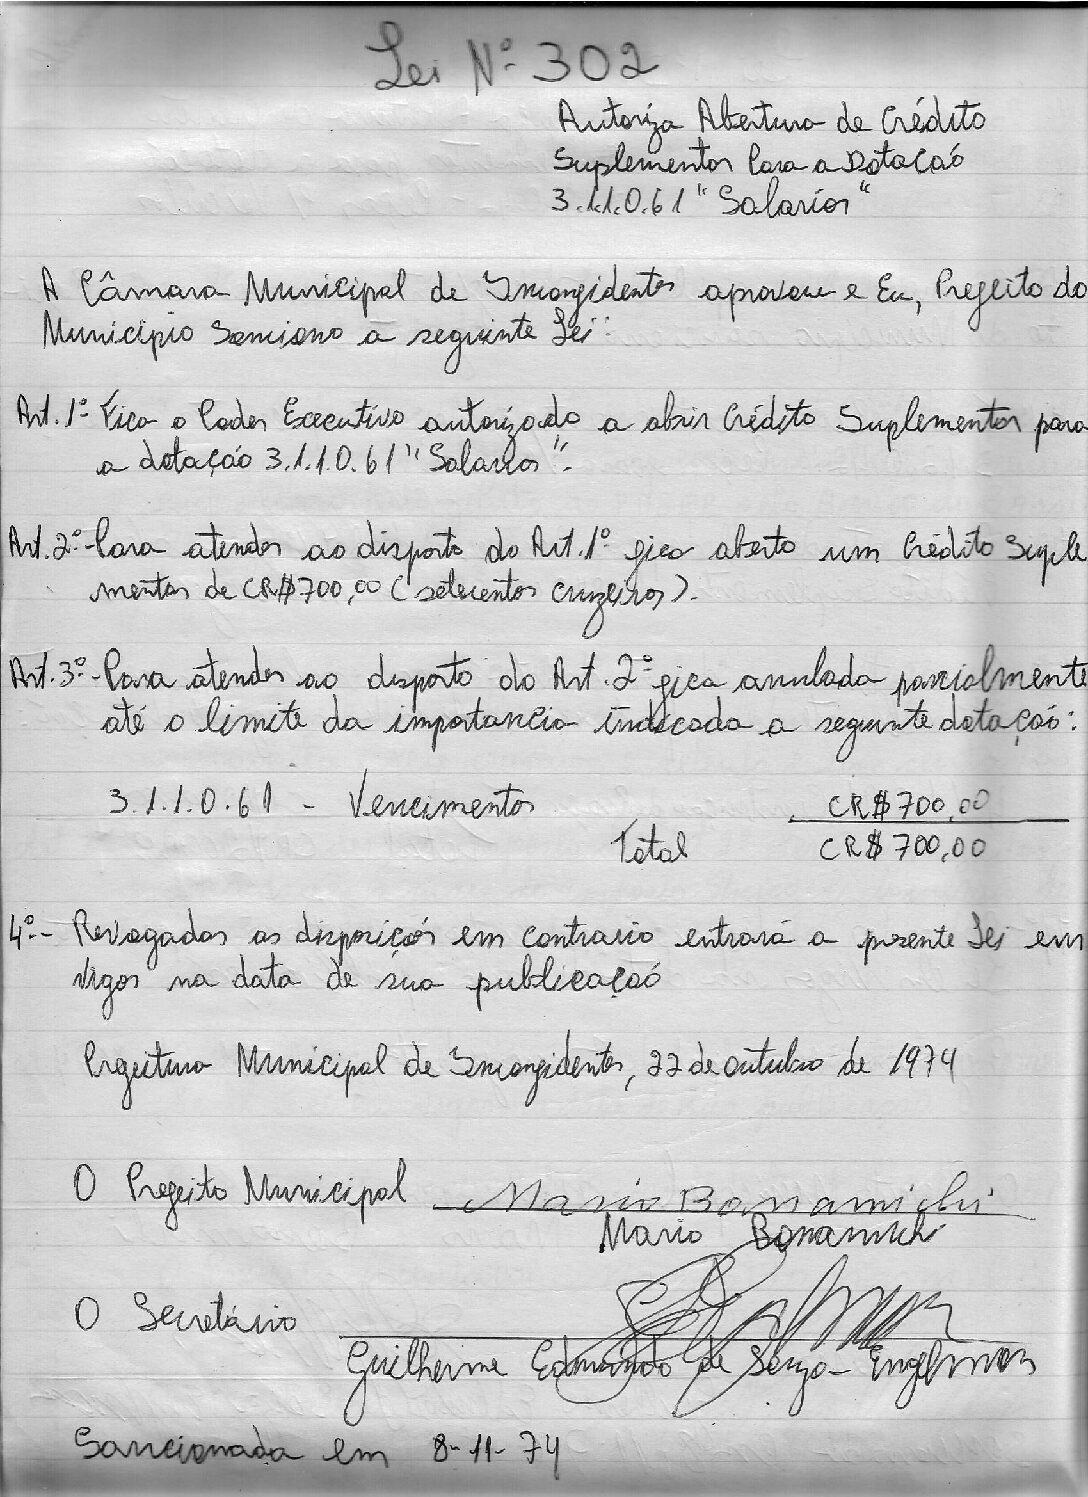 Lei Nº 302
Autoriza Abertura de Crédito
Suplementar Para a Dotação
3.1.1.0.61 "Salarios"
A Câmara Municipal de Inconfidentes aprovou e Eu, Prefeito do
Município Sanciono a seguinte Lei:
Art. 1º Fica o Poder Executivo autorizado a abrir Crédito Suplementar para
a dotação 3.1.1.0.61 "Salarios".
Art. 2º - Para atender ao disposto do Art. 1º fica aberto um Crédito Suple
mentar de CR$700,00 (setecentos cruzeiros).
Art. 3º - Para atender ao disposto do Art. 2º fica anulada parcialmente
até o limite da importancia indicada a seguinte dotação:
3.1.1.0.61 - Vencimentos CR$700,00
Total CR$700,00
4º - Revogadas as disposições em contrario entrará a presente Lei em
vigor na data de sua publicação
Prefeitura Municipal de Inconfidentes, 22 de outubro de 1974
O Prefeito Municipal Mario Bonamichi
Mario Bonamichi
O Secretário
Guilherme Edmundo de Souza Engelman
Sancionada em 8-11-74